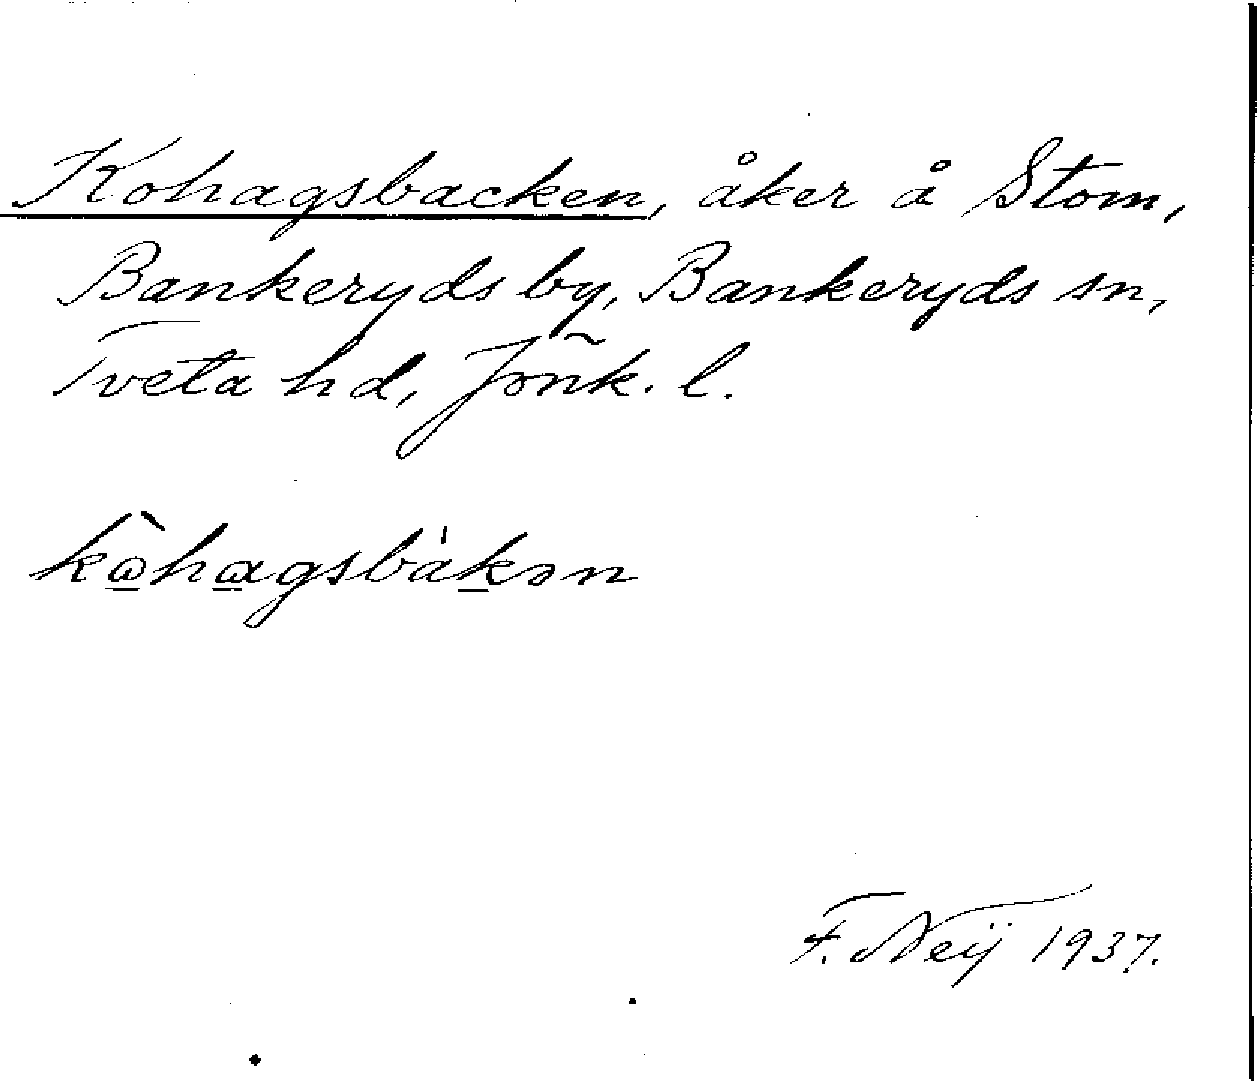 Kohagsbacken, åker å Stom,
Bankeryds by, Bankeryds sn,
Tveta hd, Jönk. l.
kω̂hɑgsbàkən
F. Neij 1937.